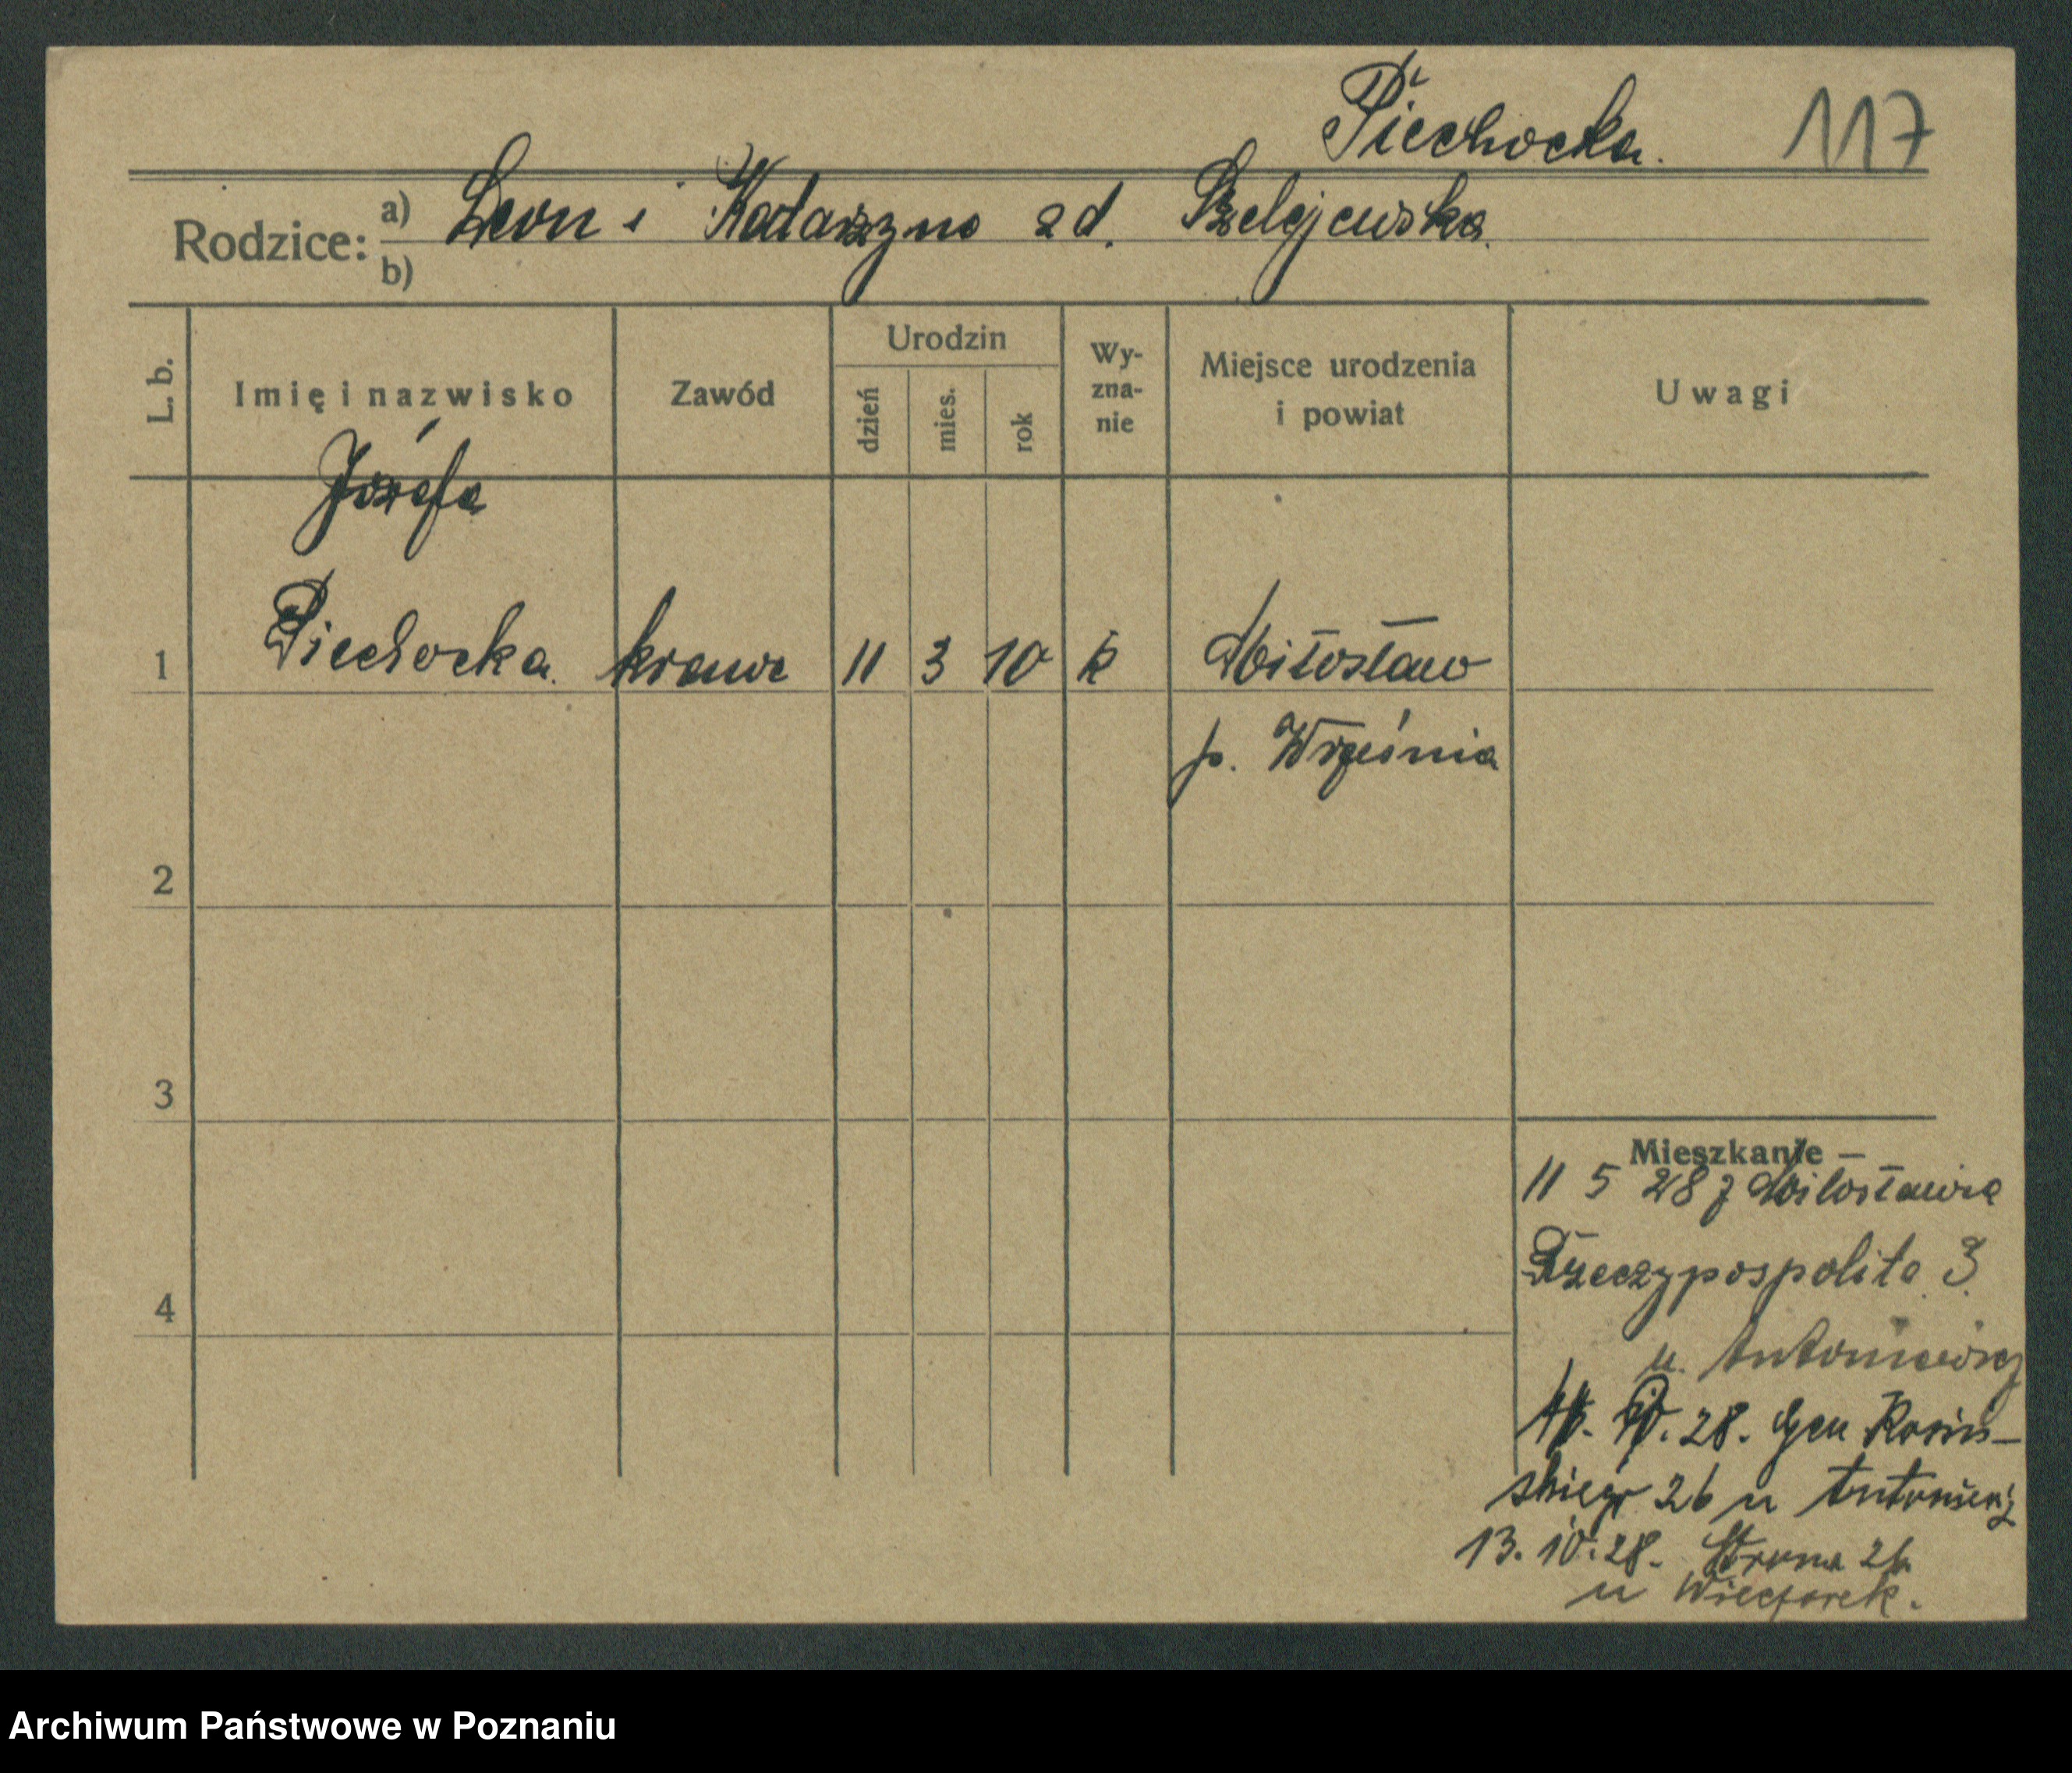 Piechocka. 117
Rodzice: a) Leon i Katarzyna zd. Szelejewska.
b)
L. b. Imię i nazwisko Zawód Urodzin dzień mies. rok Wy-zna-nie Miejsce urodzenia i powiat Uwagi
Józefa
1 Piechocka. krawc 11 3 10 k Miłosław
p. Września
2
3
Mieszkanie —
11 5 28 z Miłosławia
4 Rzeczypospolita 3
u. Antoniewicz
28. Gen Kosiń-
skiego 26 u Antoniewicz
13. 10. 28. Strona 26
u Wieczorek.
Archiwum Państwowe w Poznaniu